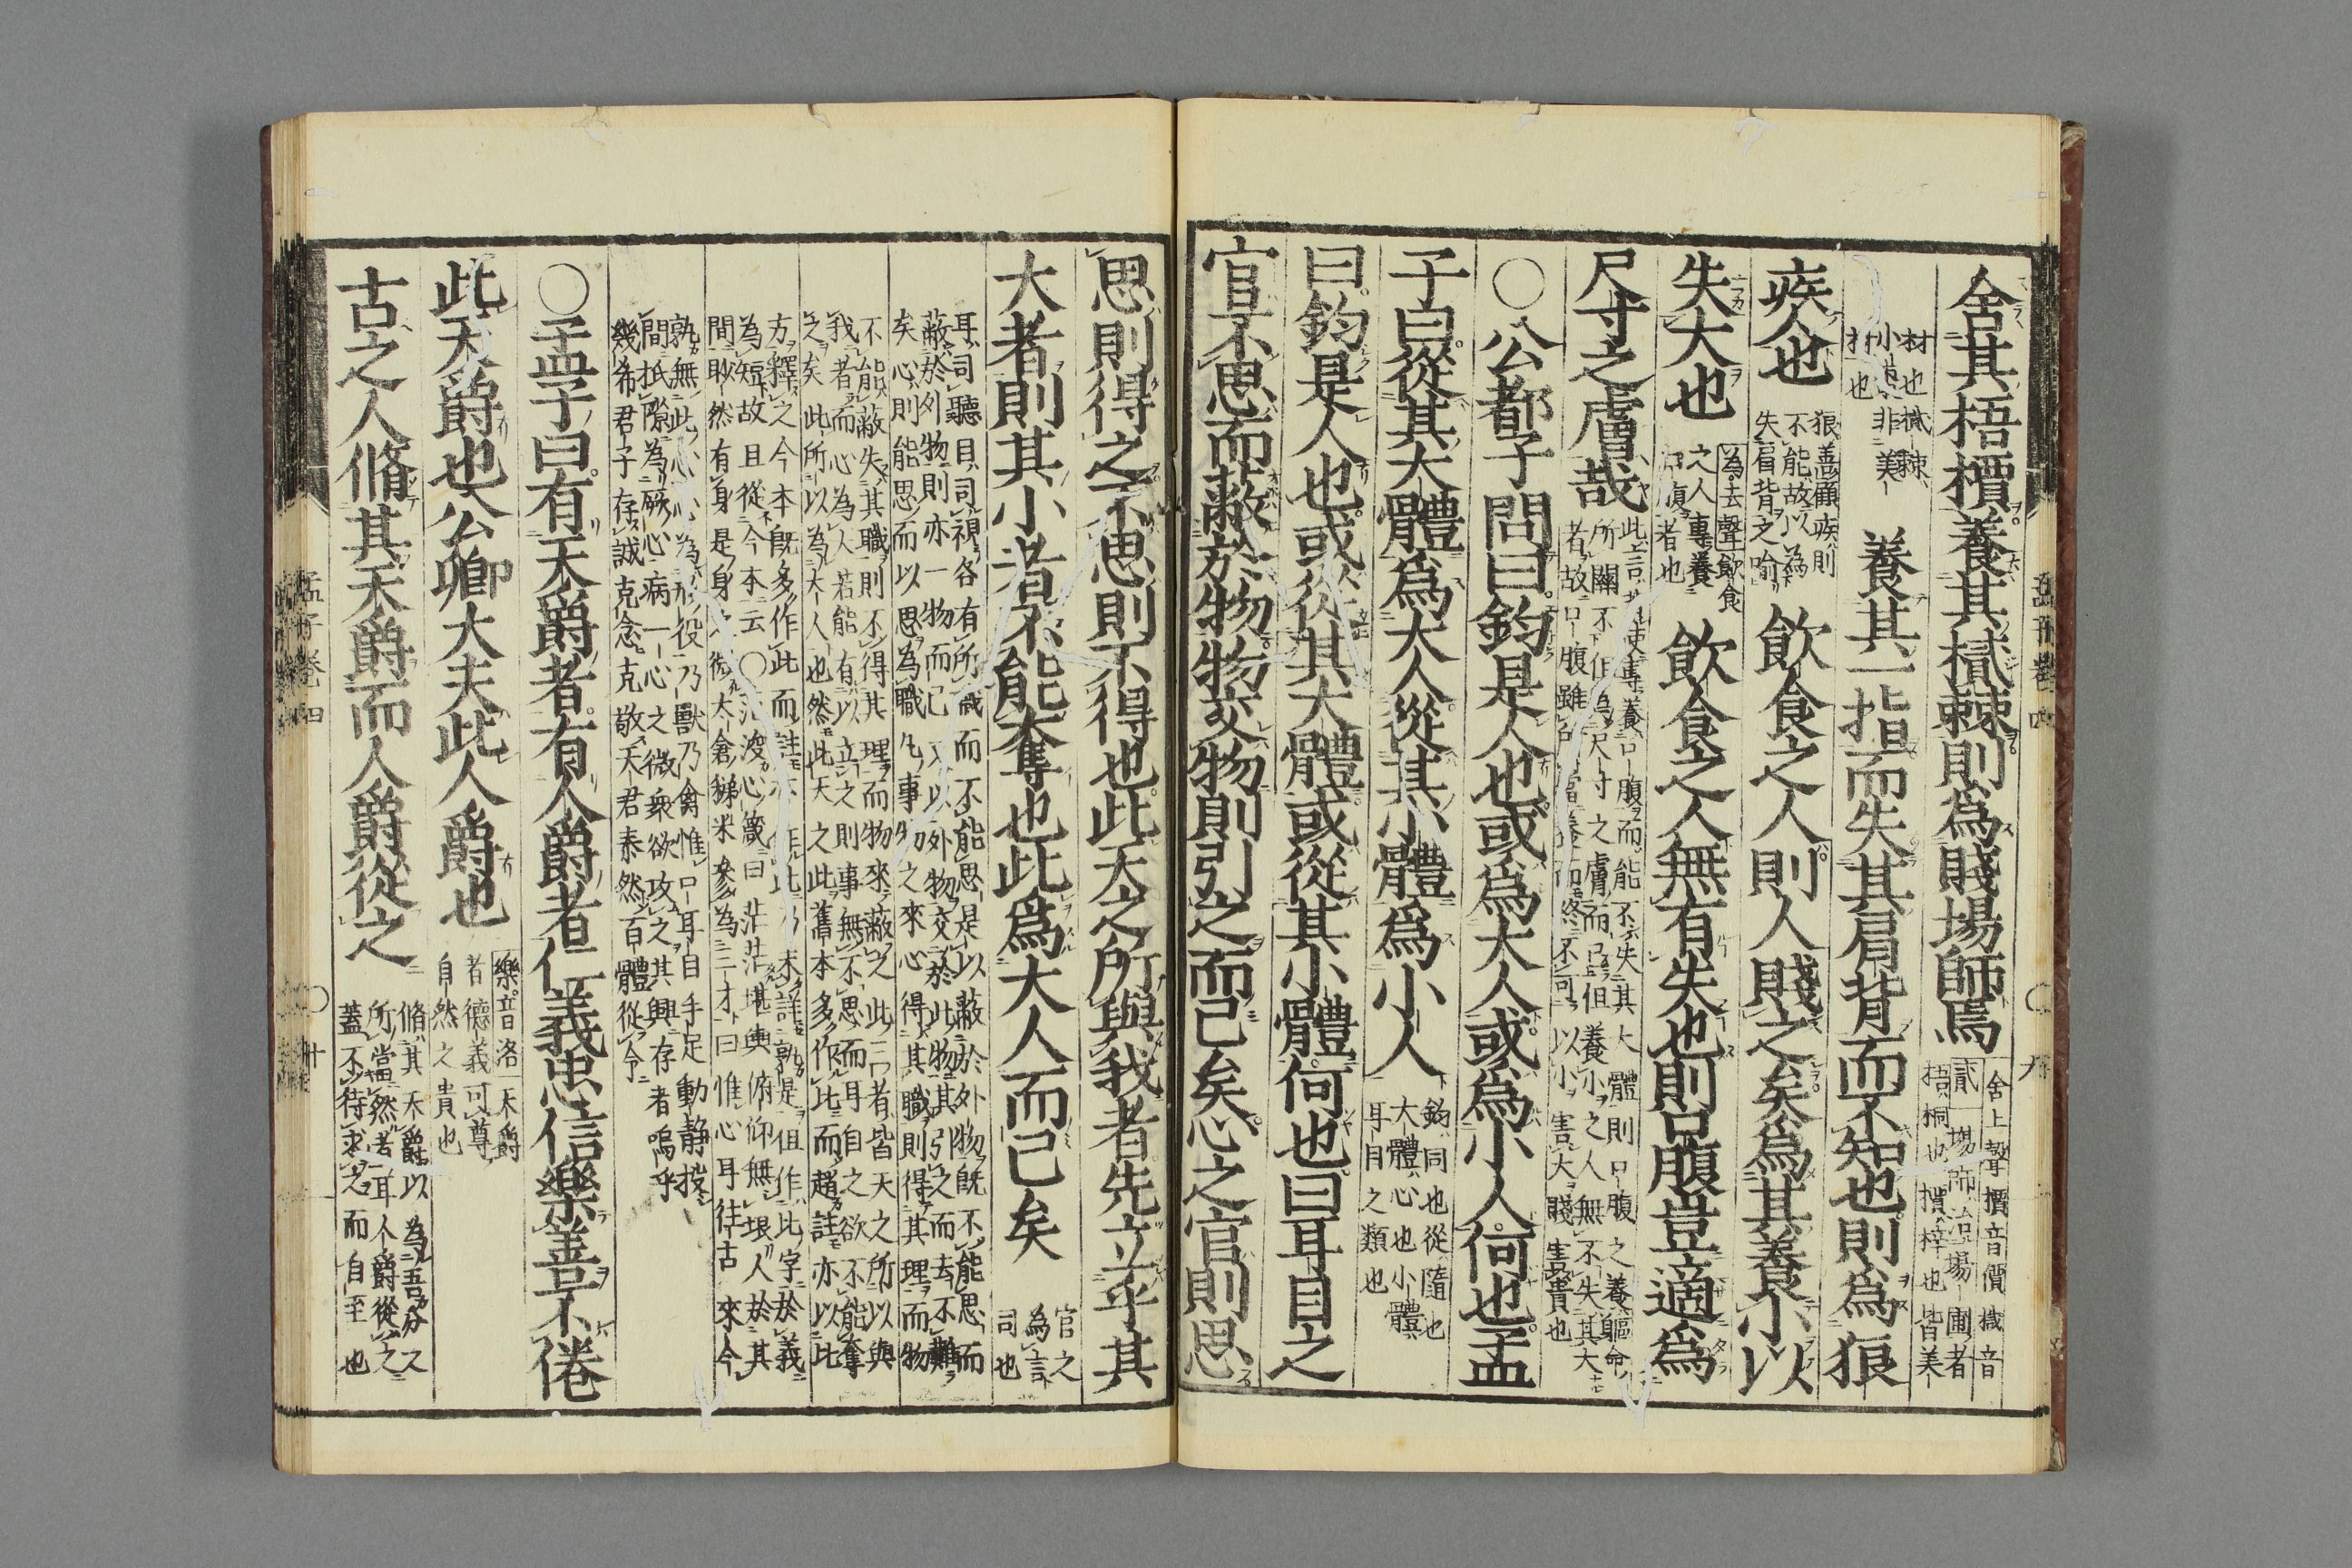 舍其梧檟養其樲棘則爲賤場師焉
舍上聲檟音價樲音
貳 場師治場圃者
梧桐也檟梓也皆美
材也樲棘
小棗非美
材也
養其一指而失其肩背而不知也則爲狼
疾人也
狼善顧疾則
不能故以爲
失肩背之喻
飲食之人則人賤之矣爲其養小以
失大也
為去聲飲食
之人專養
口腹者也
飲食之人無有失也則口腹豈適爲
尺寸之膚哉
此言若使專養口腹而能不失其大體則口腹之養軀命
所關不但為尺寸之膚而已但養小之人無不失其大
者故口腹雖所當養而終不可以小害大賤害貴也
〇公都子問曰鈞是人也或爲大人或爲小人何也孟
子曰從其大體爲大人從其小體爲小人
鈞同也從隨也
大體心也小體
耳目之類也
曰鈞是人也或從其大體或從其小體何也曰耳目之
官不思而蔽於物物交物則引之而已矣心之官則思
思則得之不思則不得也此天之所與我者先立乎其
大者則其小者不能奪也此爲大人而已矣
官之
為言
司也
耳司聽目司視各有所職而不能思是以蔽於外物既不能思而
蔽於外物則亦一物而已又以外物交於此物其引之而去不難
矣心則能思而以思為職凡事物之來心得其職則得其理而物
不能蔽失其職則不得其理而物來蔽之此三者皆天之所以與
我者而心為大若能有以立之則事無不思而耳目之欲不能奪
之矣此所以為大人也然此天之此舊本多作比而趙註亦以比
方釋之今本既多作此而註亦作此乃未詳孰是但作比字於義
為短故且從今本云〇范浚心箴曰茫茫堪輿俯仰無垠人於其
間眇然有身是身之微大倉稊米參為三才曰惟心耳往古來今
孰無此心心為形役乃獸乃禽惟口耳目手足動静投
間抵隙為厥心病一心之微衆欲攻之其與存者嗚乎
幾希君子存誠克念克敬天君泰然百體從令
〇孟子曰有天爵者有人爵者仁義忠信樂善不倦
此天爵也公卿大夫此人爵也
樂音洛天爵
者德義可尊
自然之貴也
古之人脩其天爵而人爵從之
脩其天爵以為吾分之
所當然者耳人爵從之
蓋不待求之而自至也
孟子卷四
〇
十